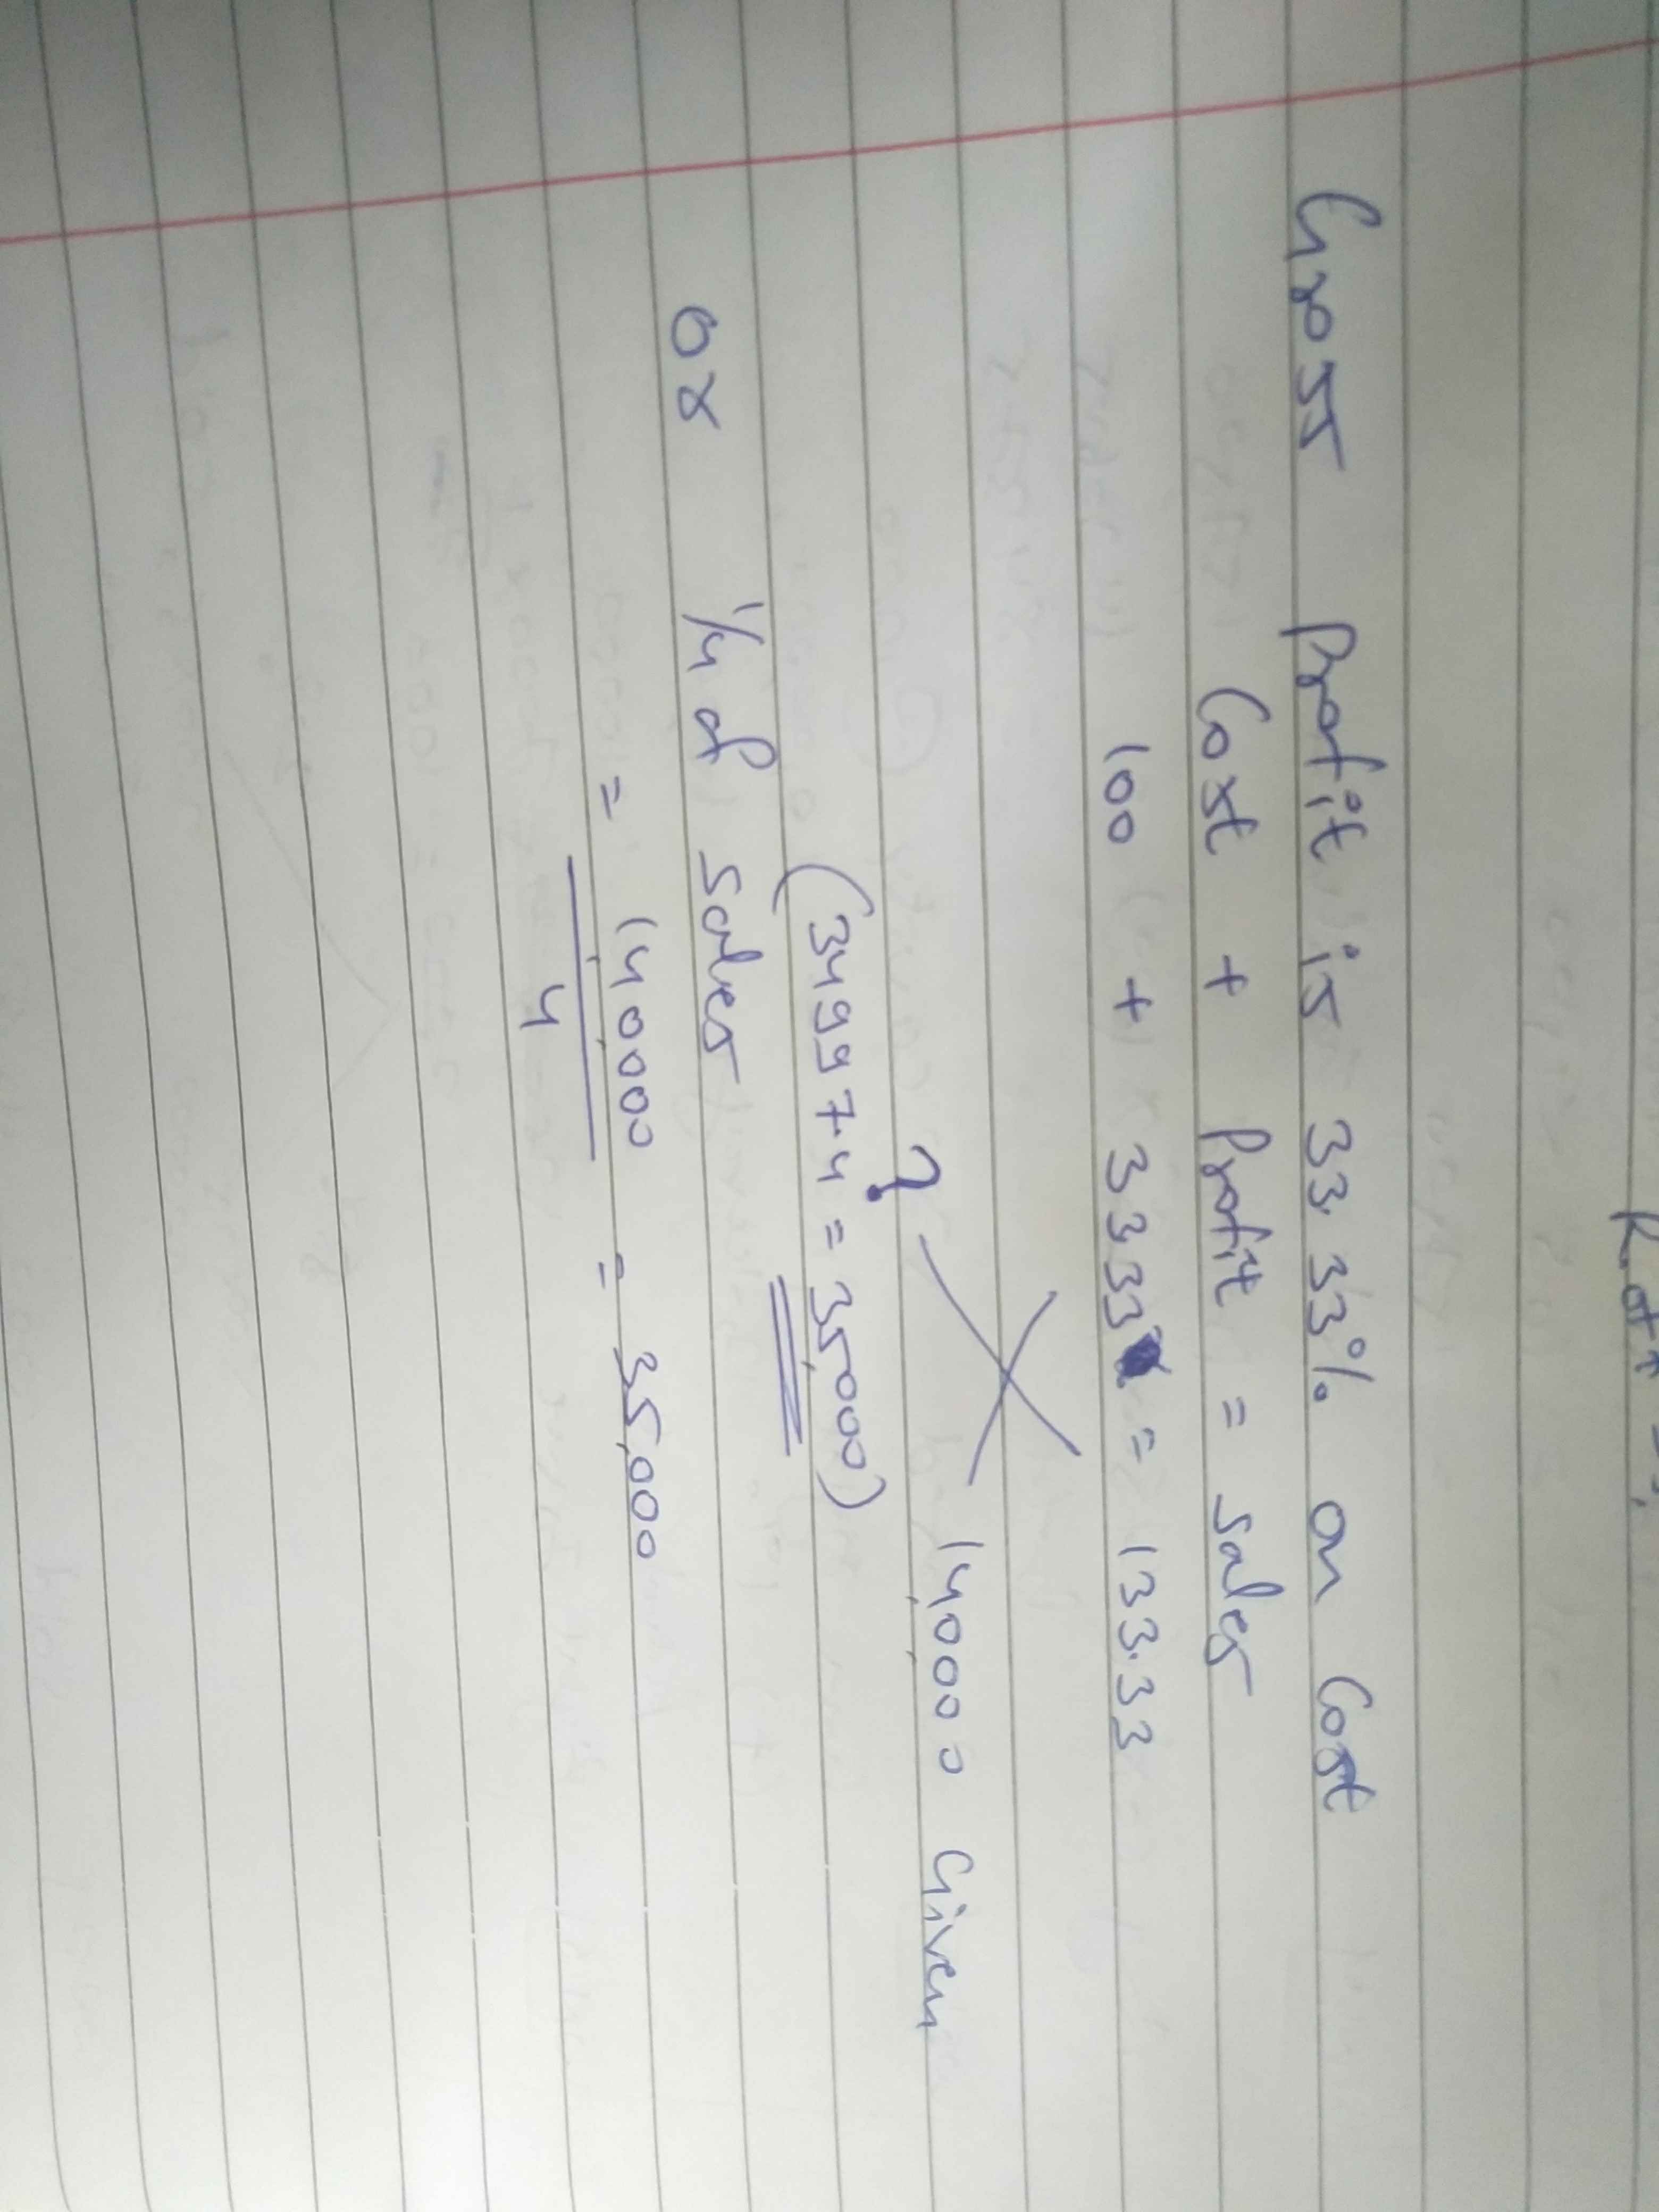 Gross Profit is 33.33% on Cost
Cost + Profit = Sales
100 + 33.33 = 133.33
? 1,40,000 Given
(34997.4 = 35,000)
or 1/4 of Sales
= 1,40,000 = 35,000
4